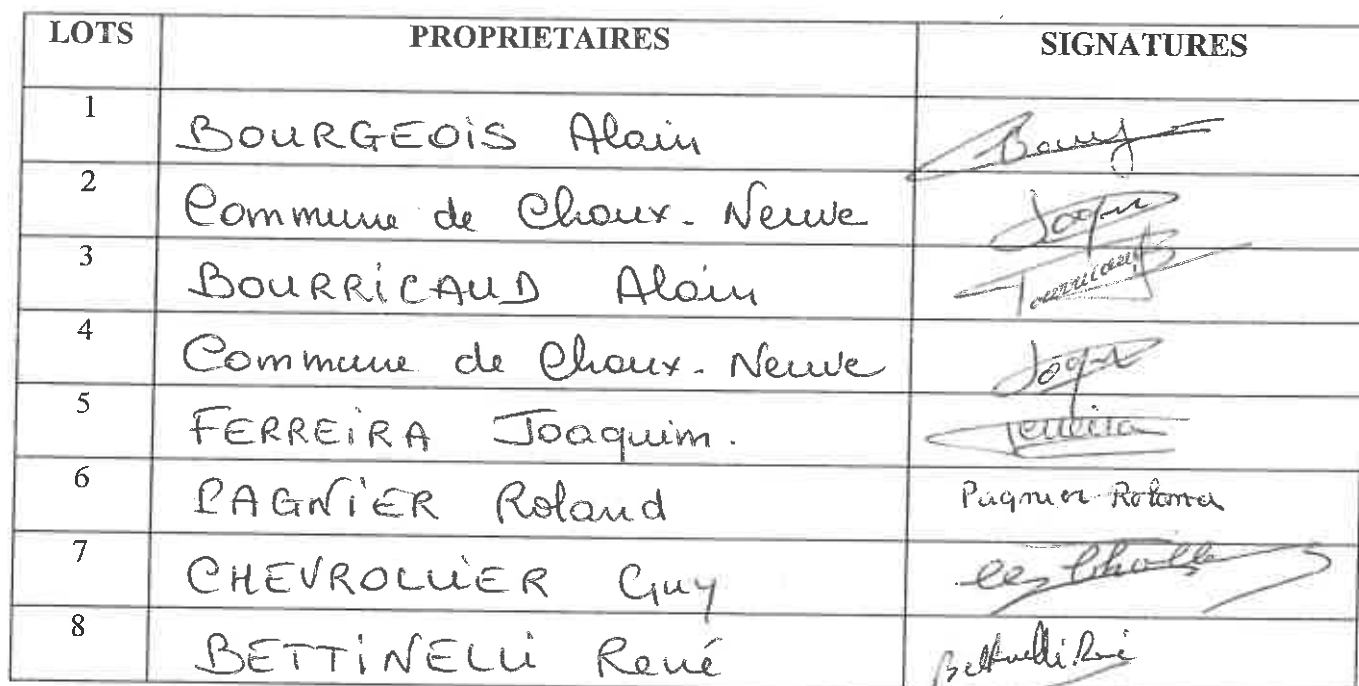 LOTS PROPRIETAIRES SIGNATURES
1 BOURGEOIS Alain
2 Commune de Chaux-Neuve
3 BOURRICAUD Alain
4 Commune de Chaux-Neuve
5 FERREIRA Joaquim. Ferreira
6 PAGNIER Roland Pagnier Roland
7 CHEVROLLIER Guy
8 BETTINELLI René Bettinelli René